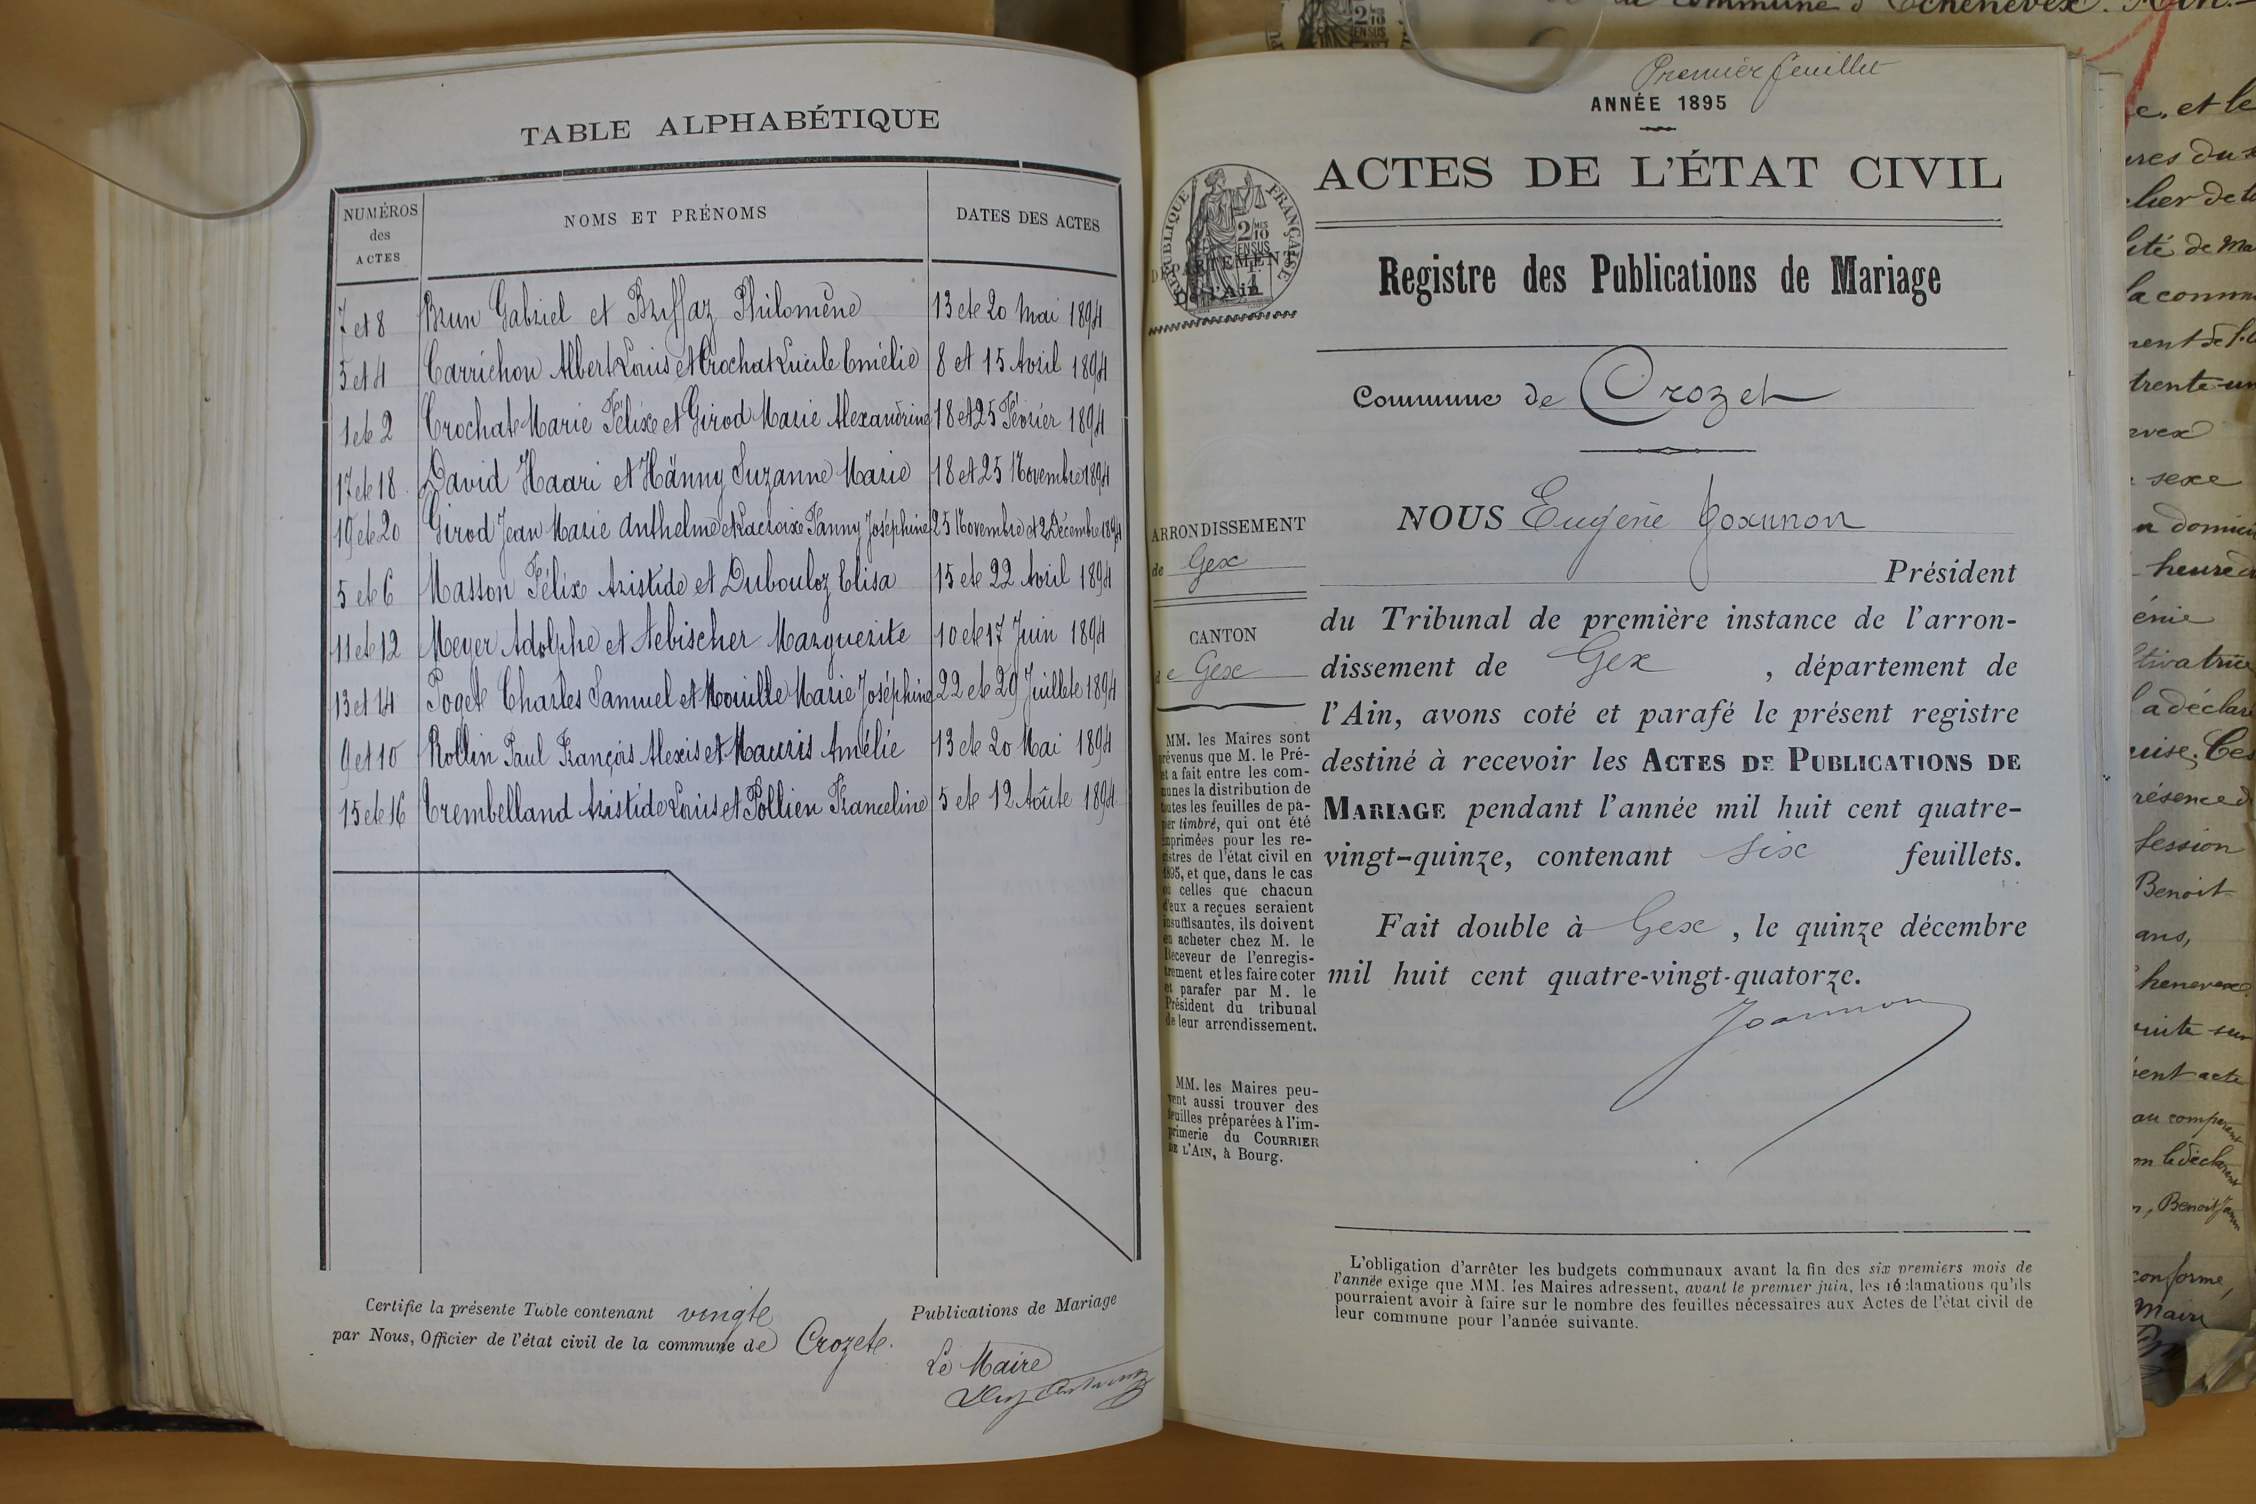 TABLE ALPHABÉTIQUE
NUMÉROS des ACTES
NOMS ET PRÉNOMS
DATES DES ACTES
7 et 8 Brun Gabriel et Briffaz Philomène 13 et 20 Mai 1894
3 et 4 Carrichon Albert Louis et Crochat Lucile Emélie 8 et 15 Avril 1894
1 et 2 Crochat Marie Félix et Girod Marie Alexandrine 18 et 25 Février 1894
17 et 18 David Haari et Hänny Suzanne Marie 18 et 25 Novembre 1894
19 et 20 Girod Jean Marie Anthelme et Lacroix Fanny Joséphine 25 Novembre et 2 Décembre 1894
5 et 6 Masson Félix Aristide et Dubouloz Elisa 15 et 22 Avril 1894
11 et 12 Meyer Adolphe et Aebischer Marguerite 10 et 17 Juin 1894
13 et 14 Poget Charles Samuel et Mouille Marie Joséphine 22 et 29 Juillet 1894
9 et 10 Rollin Paul François Alexis et Mauris Amélie 13 et 20 Mai 1894
15 et 16 Trembelland Aristide Louis et Pollien Franceline 5 et 12 Août 1894
Certifie la présente Table contenant vingt Publications de Mariage
par Nous, Officier de l'état civil de la commune de Crozet.
Le Maire
Premier feuillet
ANNÉE 1895
ACTES DE L'ÉTAT CIVIL
RÉPUBLIQUE FRANÇAISE
2/10 EN SUS
DÉPARTEMENT
De l'Ain
Registre des Publications de Mariage
Commune de Crozet
ARRONDISSEMENT
de Gex
CANTON
de Gex
MM. les Maires sont
prévenus que M. le Pré-
fet a fait entre les com-
munes la distribution de
toutes les feuilles de pa-
pier timbré, qui ont été
imprimées pour les re-
gistres de l'état civil en
1895, et que, dans le cas
où celles que chacun
d'eux a reçues seraient
insuffisantes, ils doivent
en acheter chez M. le
Receveur de l'enregis-
trement et les faire coter
et parafer par M. le
Président du tribunal
de leur arrondissement.
MM. les Maires peu-
vent aussi trouver des
feuilles préparées à l'im-
primerie du COURRIER
DE L'AIN, à Bourg.
NOUS Eugène Joannon
Président
du Tribunal de première instance de l'arron-
dissement de Gex, département de
l'Ain, avons coté et parafé le présent registre
destiné à recevoir les ACTES DE PUBLICATIONS DE
MARIAGE pendant l'année mil huit cent quatre-
vingt-quinze, contenant six feuillets.
Fait double à Gex, le quinze décembre
mil huit cent quatre-vingt-quatorze.
Joannon
L'obligation d'arrêter les budgets communaux avant la fin des six premiers mois de
l'année exige que MM. les Maires adressent, avant le premier juin, les réclamations qu'ils
pourraient avoir à faire sur le nombre des feuilles nécessaires aux Actes de l'état civil de
leur commune pour l'année suivante.
commune d'Echenevex. Ain.
et le
la commu
trente-un
sexe
domici
heure
énie
a déclar
session
Benoit
ans,
sur
acte
Benoit
conforme,
Maire